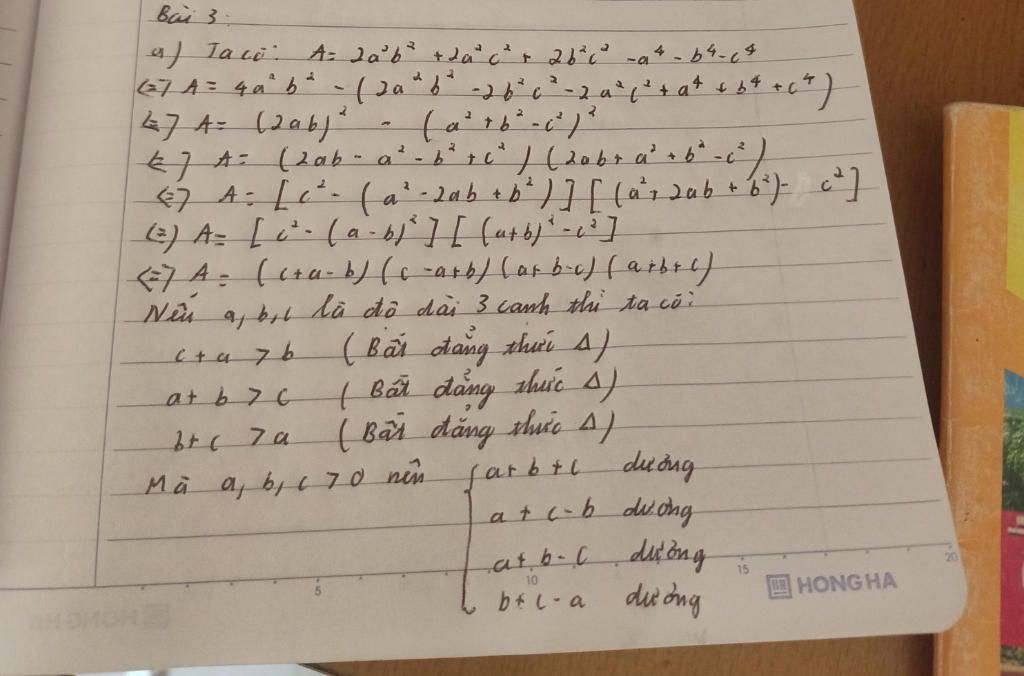 Bài 3:
a) Ta có: A = 2a²b² + 2a²c² + 2b²c² - a⁴ - b⁴ - c⁴
<=> A = 4a²b² - (2a²b² - 2b²c² - 2a²c² + a⁴ + b⁴ + c⁴)
<=> A = (2ab)² - (a² + b² - c²)²
<=> A = (2ab - a² - b² + c²) (2ab + a² + b² - c²)
<=> A = [c² - (a² - 2ab + b²)] [(a² + 2ab + b²) - c²]
<=> A = [c² - (a - b)²] [(a+b)² - c²]
<=> A = (c+a-b) (c-a+b) (a+b-c) (a+b+c)
Nếu a, b, c là độ dài 3 cạnh thì ta có:
c + a > b (Bất đẳng thức Δ)
a + b > c (Bất đẳng thức Δ)
b + c > a (Bất đẳng thức Δ)
Mà a, b, c > 0 nên { a + b + c dương
a + c - b dương
a + b - c dương
b + c - a dương
5 10 15 20
HONG HA